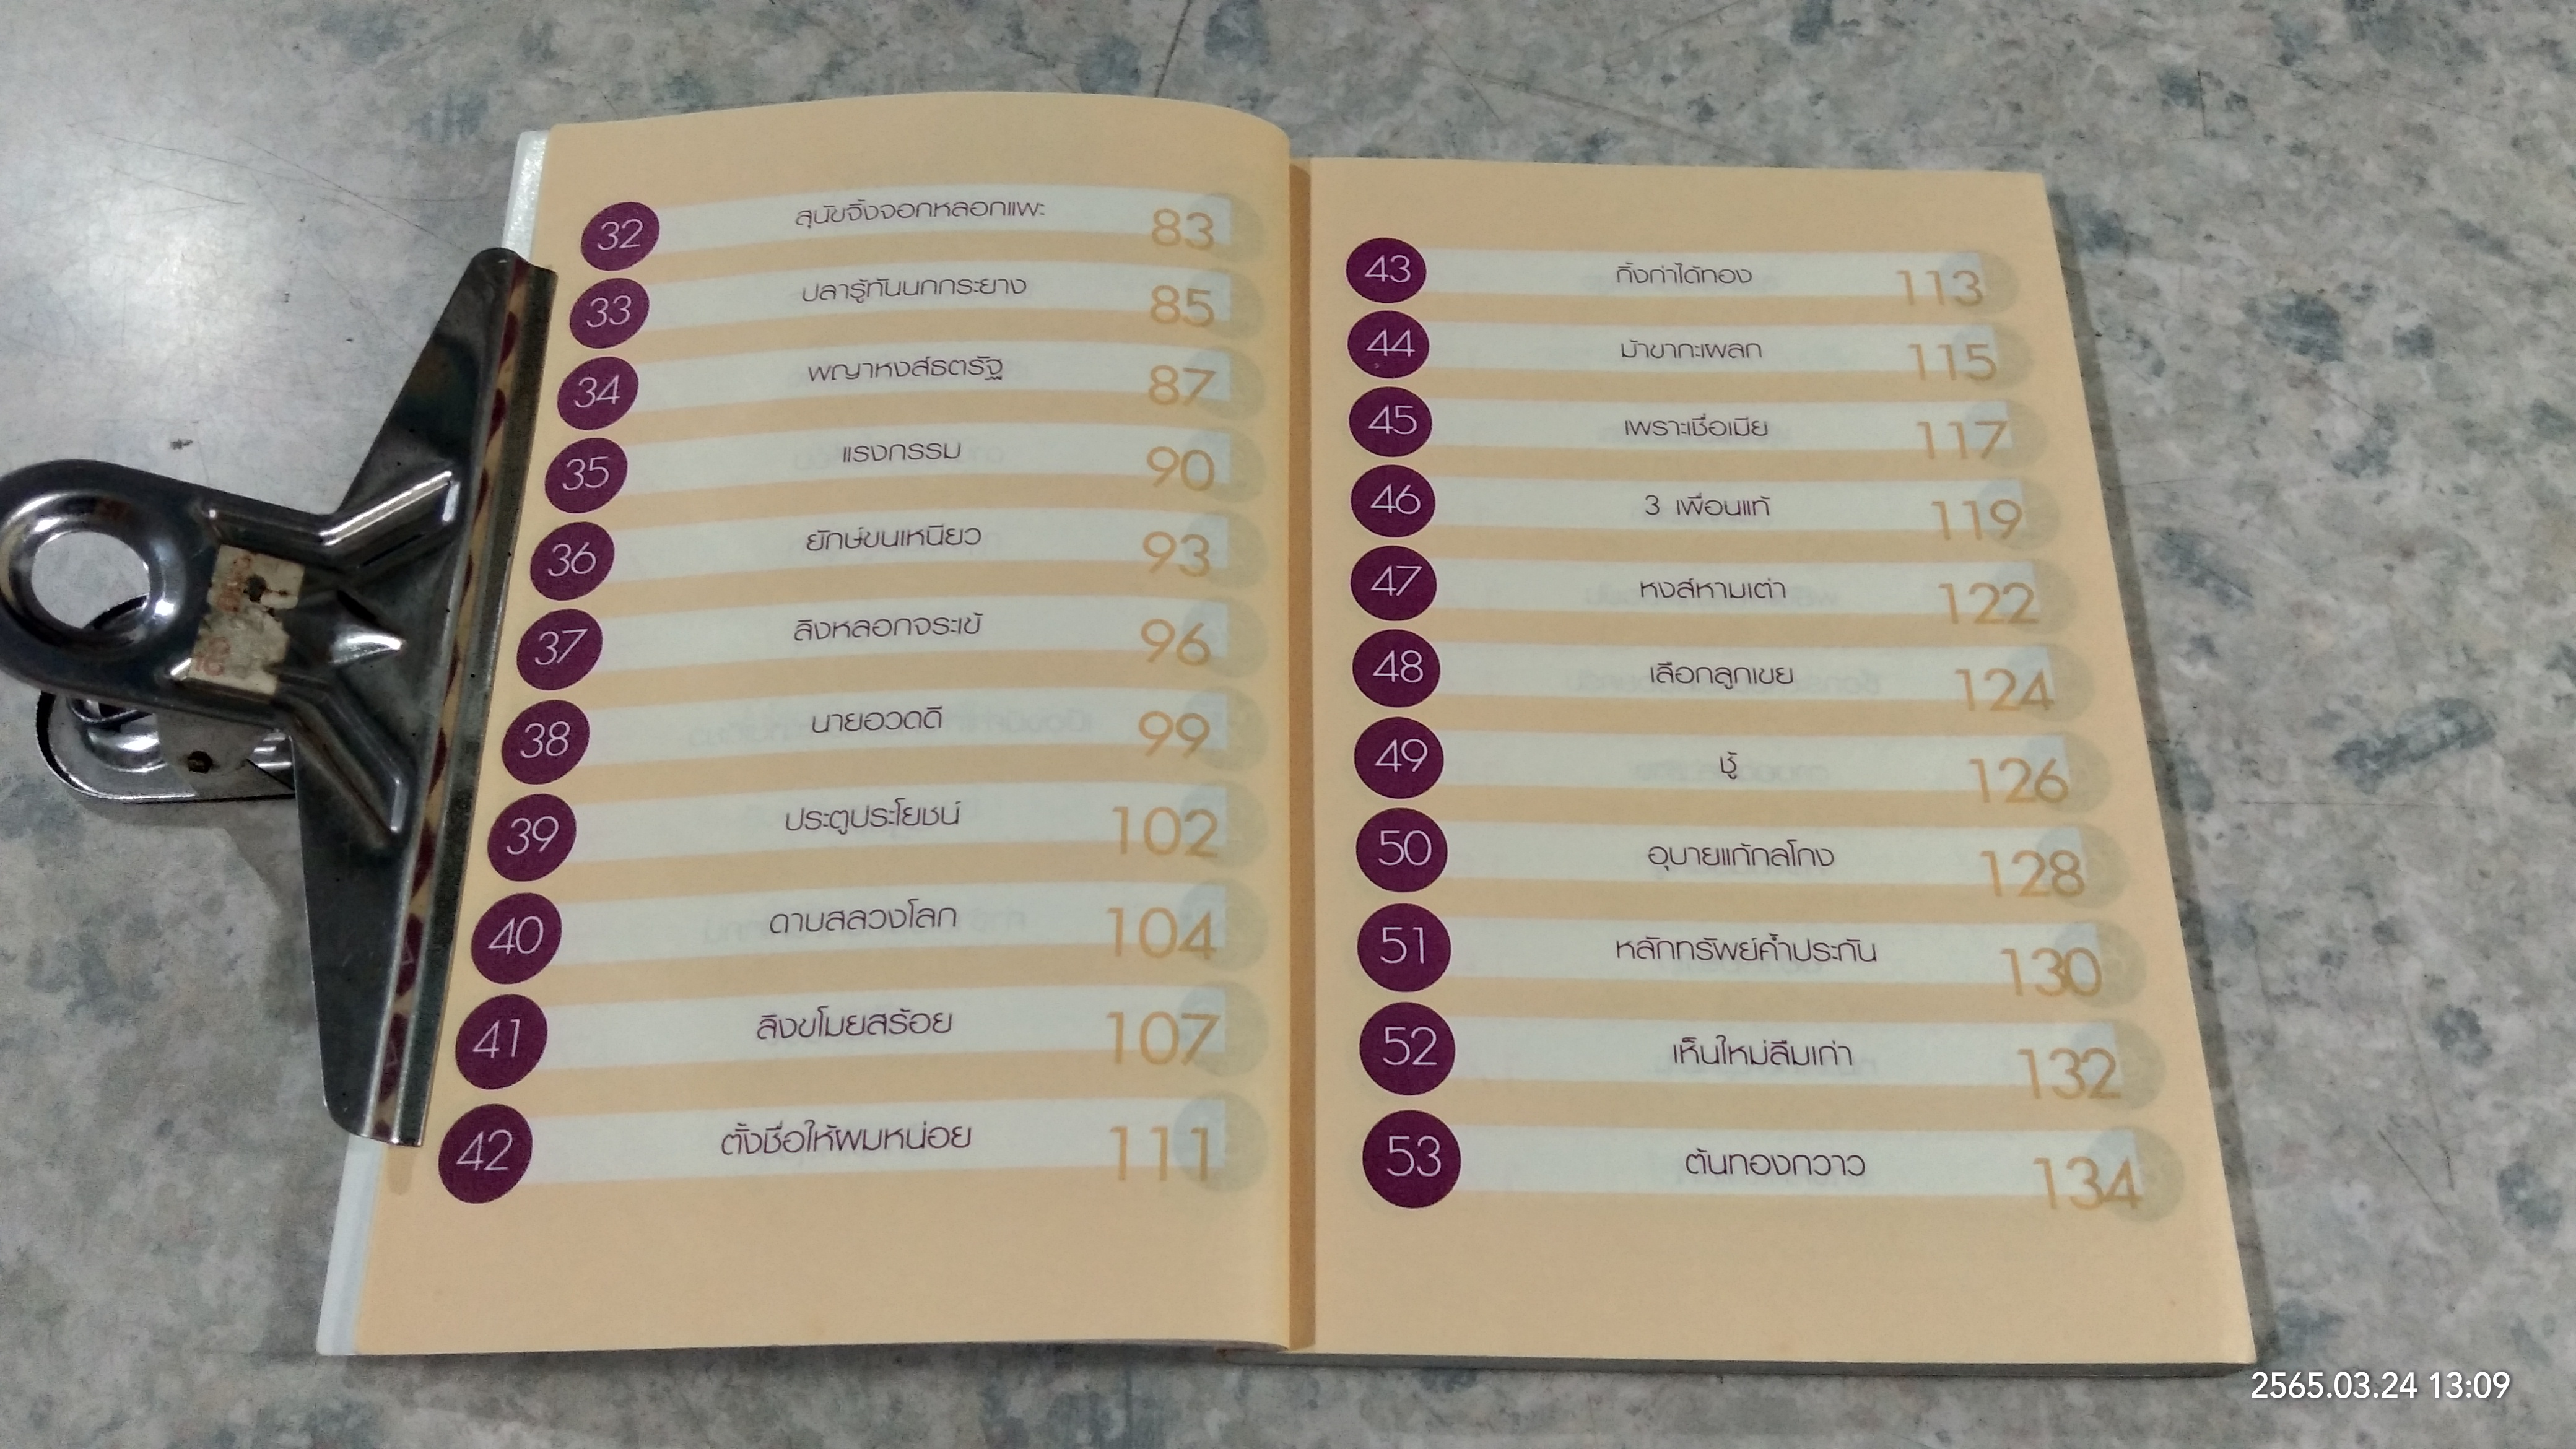 32 สุนัขจิ้งจอกหลอกแพะ 83
33 ปลารู้ทันนกกระยาง 85
34 พญาหงส์ธตรัฐ 87
35 แรงกรรม 90
36 ยักษ์ขนเหนียว 93
37 ลิงหลอกจระเข้ 96
38 นายอวดดี 99
39 ประตูประโยชน์ 102
40 ดาบสลวงโลก 104
41 ลิงขโมยสร้อย 107
42 ตั้งชื่อให้ผมหน่อย 111
43 กิ้งก่าได้ทอง 113
44 ม้าขากะเผลก 115
45 เพราะเชื่อเมีย 117
46 3 เพื่อนแท้ 119
47 หงส์หามเต่า 122
48 เลือกลูกเขย 124
49 ชู้ 126
50 อุบายแก้กลโกง 128
51 หลักทรัพย์ค้ำประกัน 130
52 เห็นใหม่ลืมเก่า 132
53 ต้นทองกวาว 134
2565.03.24 13:09